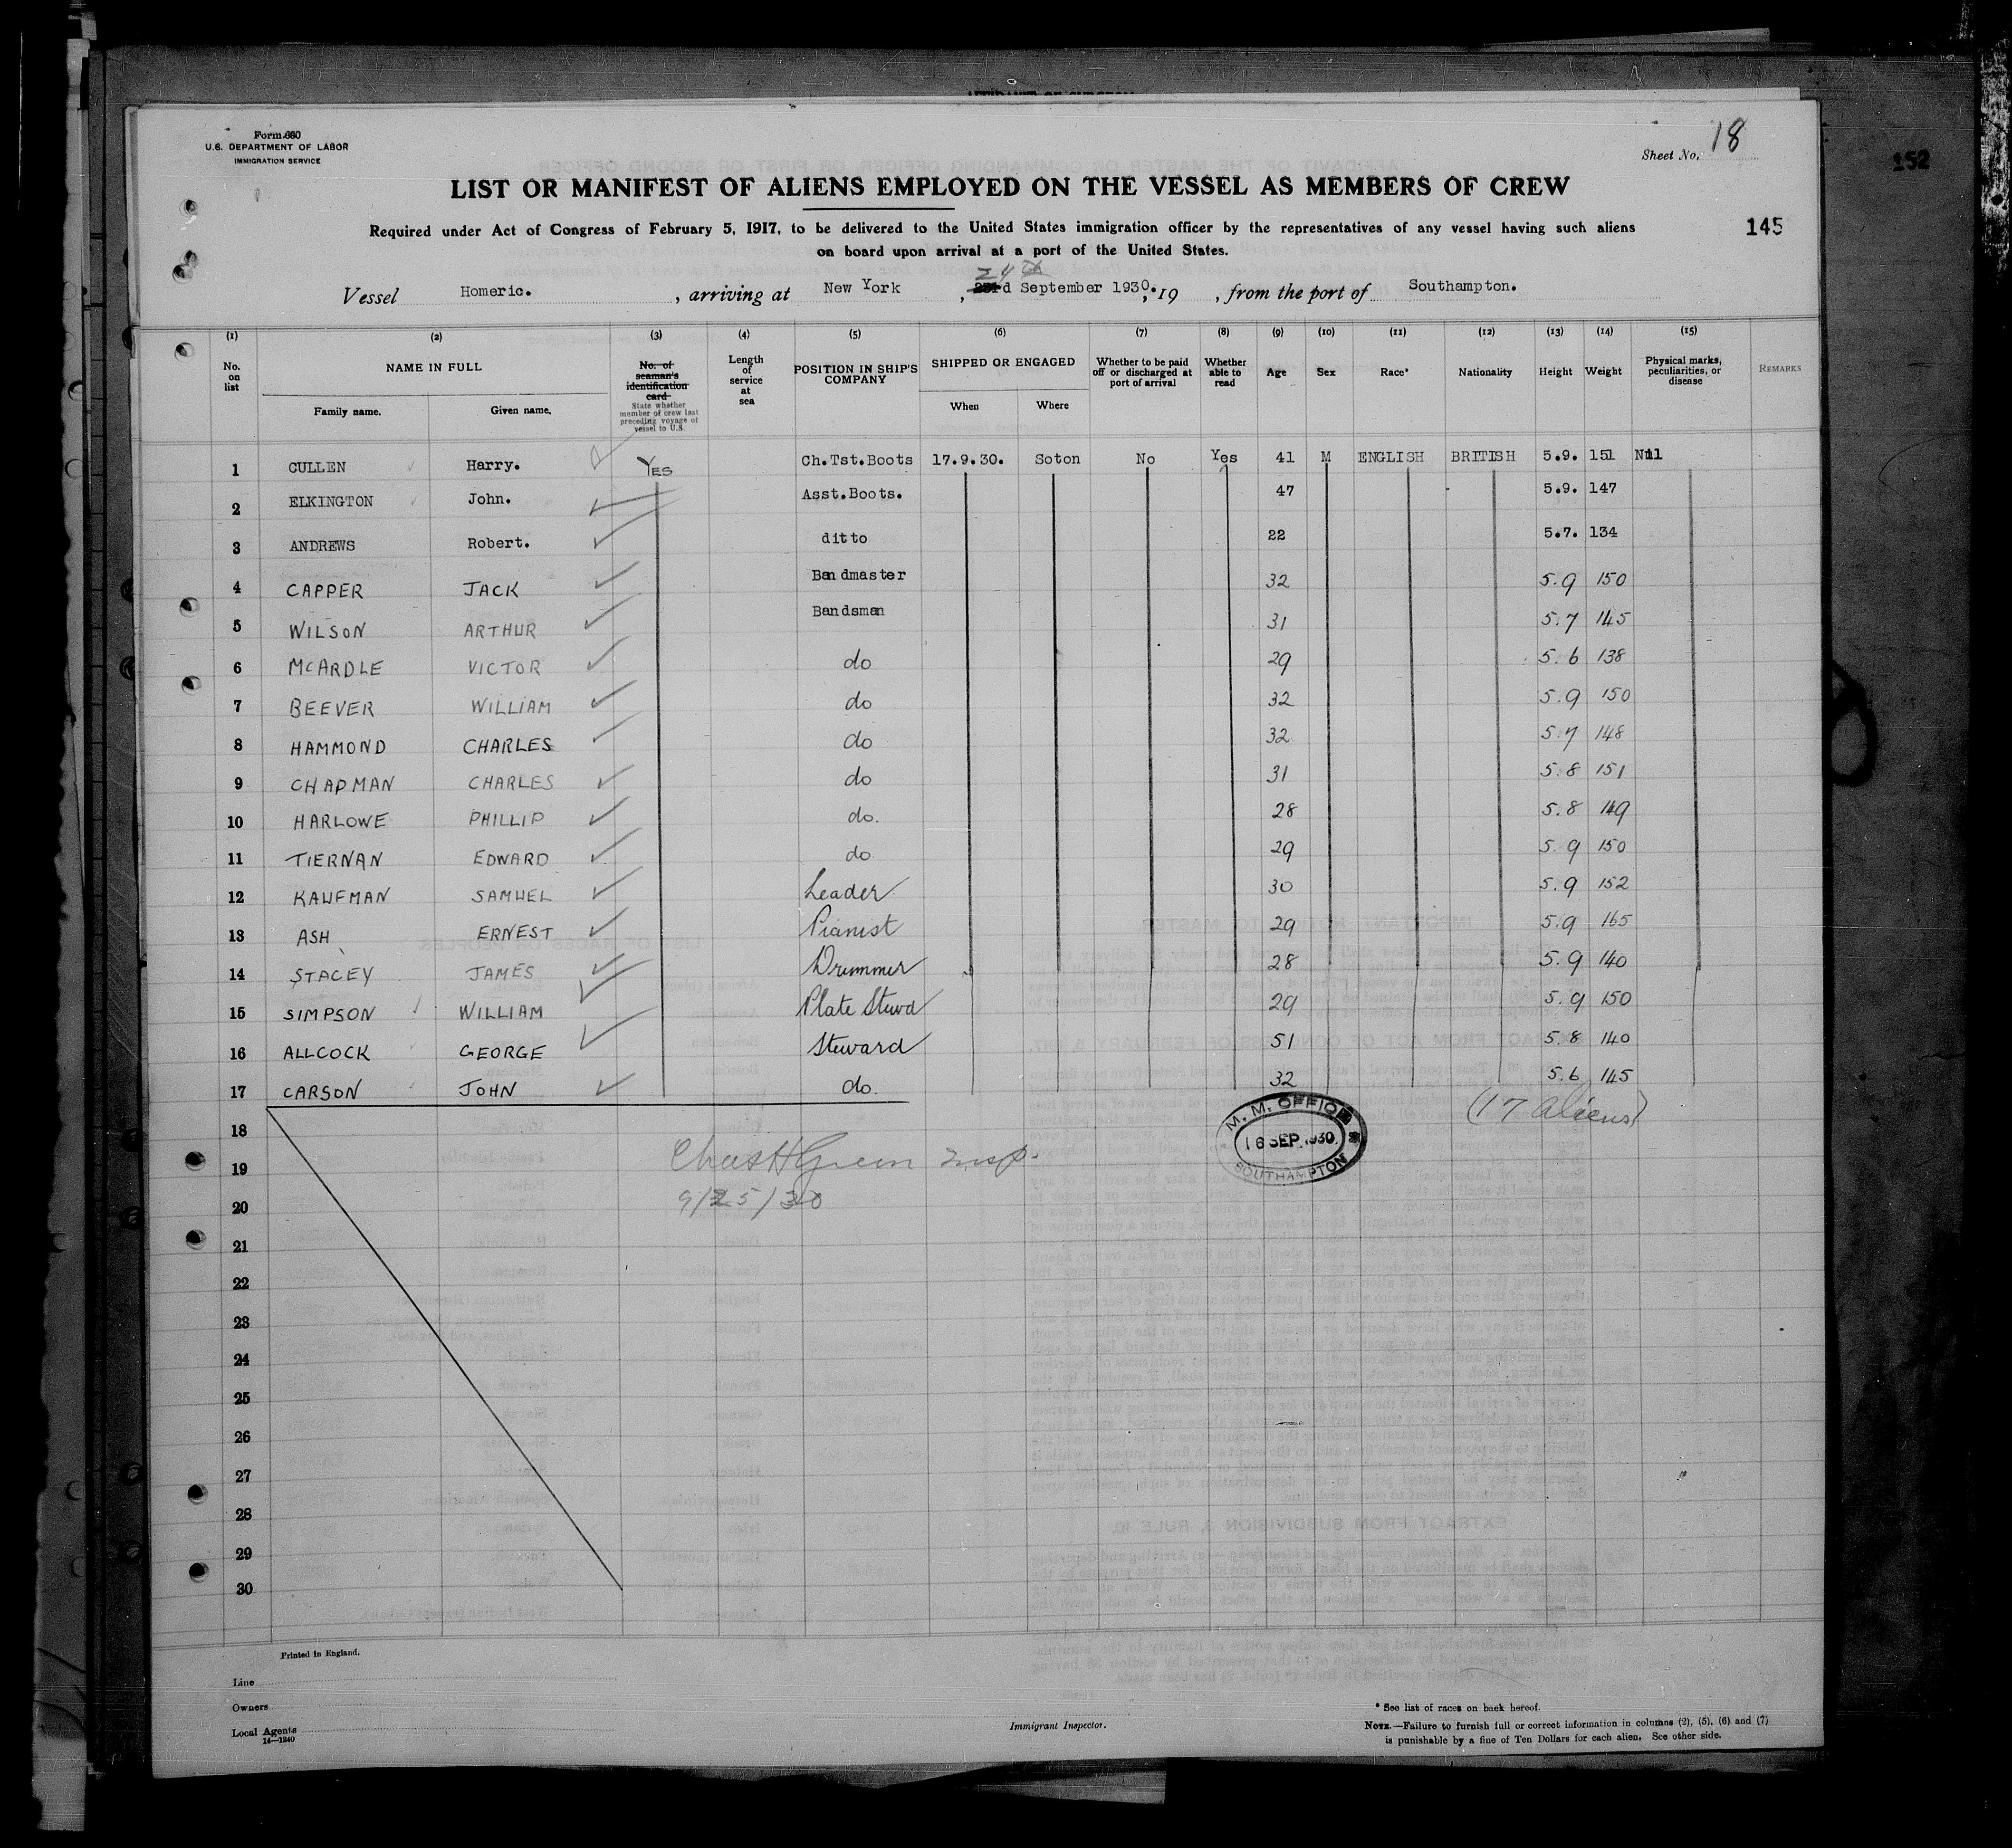 Form 680
U.S. DEPARTMENT OF LABOR
IMMIGRATION SERVICE
Sheet No. 18
152
LIST OR MANIFEST OF ALIENS EMPLOYED ON THE VESSEL AS MEMBERS OF CREW
Required under Act of Congress of February 5, 1917, to be delivered to the United States immigration officer by the representatives of any vessel having such aliens
145
on board upon arrival at a port of the United States.
24th
Vessel Homeric. , arriving at New York , 23rd September 1930. , 19 , from the port of Southampton.
(1) (2) (3) (4) (5) (6) (7) (8) (9) (10) (11) (12) (13) (14) (15)
No. on list
NAME IN FULL
Family name. Given name.
No. of seaman's identification card
State whether member of crew last preceding voyage of vessel to U.S.
Length of service at sea
POSITION IN SHIP'S COMPANY
SHIPPED OR ENGAGED
When Where
Whether to be paid off or discharged at port of arrival
Whether able to read
Age Sex Race* Nationality Height Weight
Physical marks, peculiarities, or disease
REMARKS
1 CULLEN Harry. YES Ch.Tst.Boots 17.9.30. Soton No Yes 41 M ENGLISH BRITISH 5.9. 151 Nil
2 ELKINGTON John. Asst.Boots. 47 5.9. 147
3 ANDREWS Robert. ditto 22 5.7. 134
4 CAPPER JACK Bandmaster 32 5.9 150
5 WILSON ARTHUR Bandsman 31 5.7 145
6 McARDLE VICTOR do 29 5.6 138
7 BEEVER WILLIAM do 32 5.9 150
8 HAMMOND CHARLES do 32 5.7 148
9 CHAPMAN CHARLES do 31 5.8 151
10 HARLOWE PHILLIP do. 28 5.8 149
11 TIERNAN EDWARD do 29 5.9 150
12 KAUFMAN SAMUEL Leader 30 5.9 152
13 ASH ERNEST Pianist 29 5.9 165
14 STACEY JAMES Drummer 28 5.9 140
15 SIMPSON WILLIAM Plate Stewd 29 5.9 150
16 ALLCOCK GEORGE Steward 51 5.8 140
17 CARSON JOHN do. 32 5.6 145
(17 aliens)
M. M. OFFICE
16 SEP. 1930.
SOUTHAMPTON
18
Chas H Green Insp.
19
9/25/30
20
21
22
23
24
25
26
27
28
29
30
Printed in England.
Line
Owners
Local Agents
14—1240
Immigrant Inspector.
* See list of races on back hereof.
NOTE.—Failure to furnish full or correct information in columns (2), (5), (6) and (7)
is punishable by a fine of Ten Dollars for each alien. See other side.